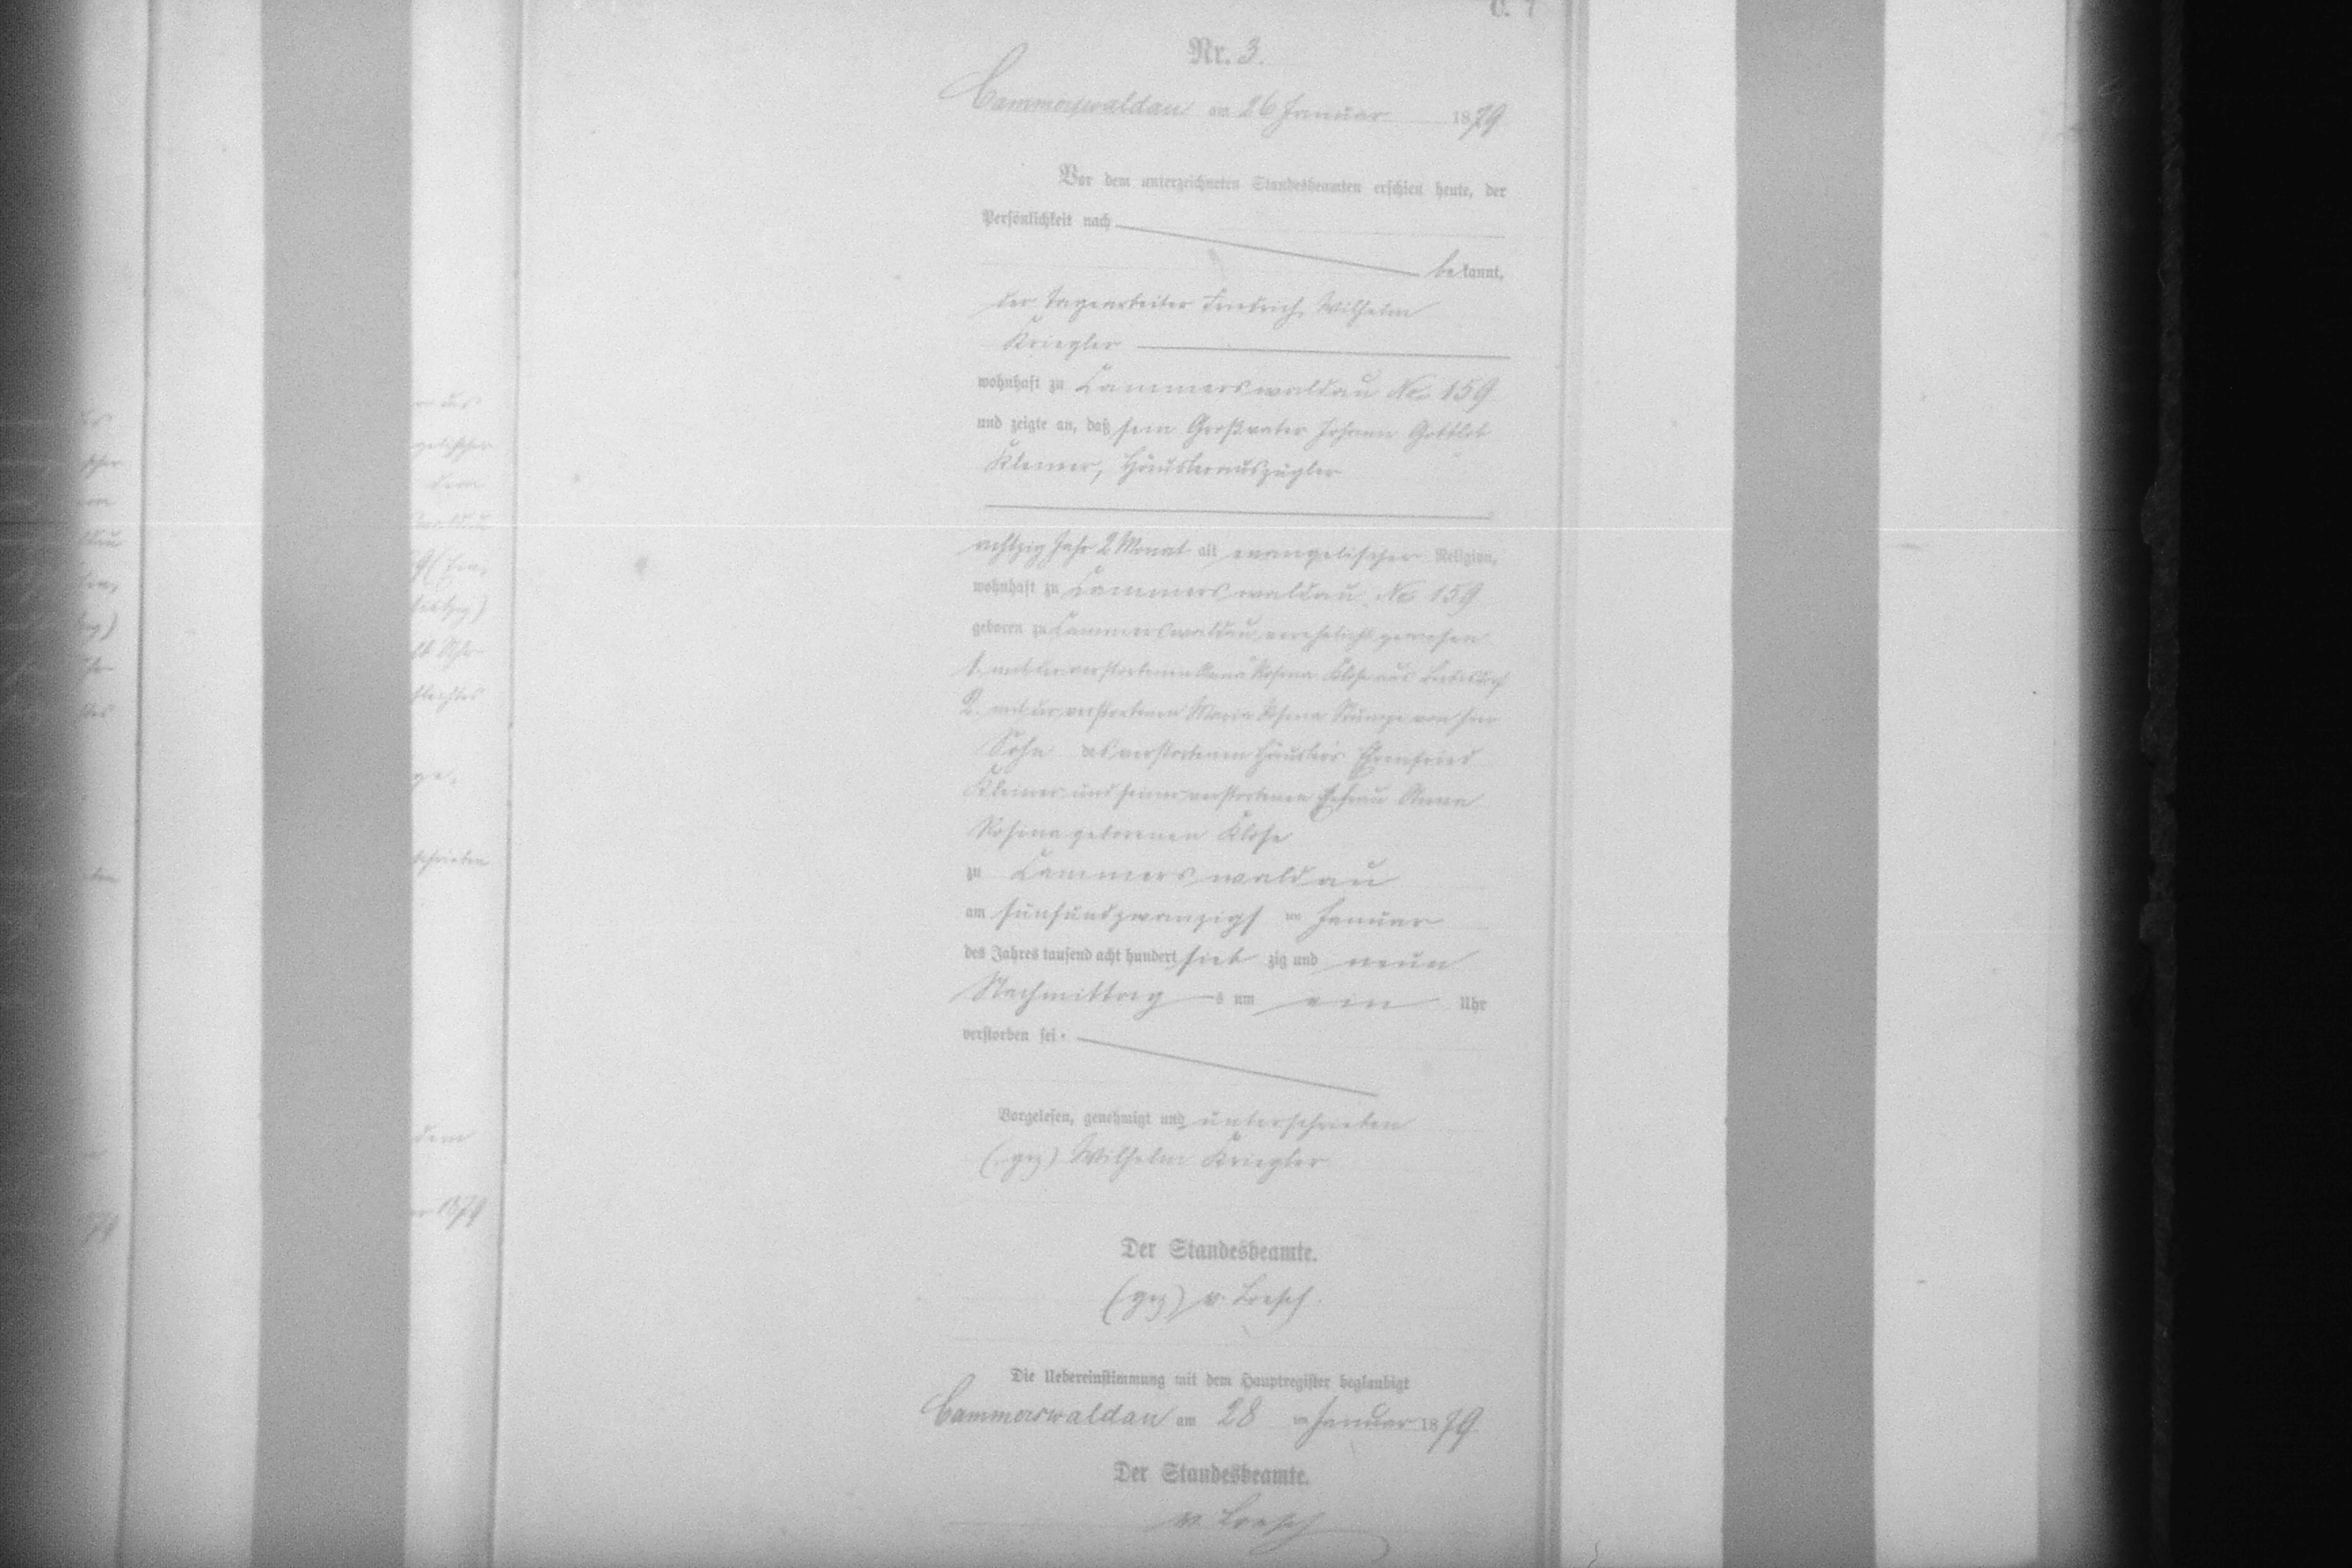 Nr. 3.
Cammerswaldau am 26 Januar 1879
Vor dem unterzeichneten Standesbeamten erschien heute, der
Persönlichkeit nach
bekannt,
der Tagearbeiter Friedrich Wilhelm
Kriegler
wohnhaft zu Cammerswaldau No. 159
und zeigte an, daß sein Großvater Johann Gottlob
Klemer, Häuslerauszügler
achtzig Jahr 2 Monat alt evangelischer Religion,
wohnhaft zu Cammerswaldau No 159
geboren zu Cammerswaldau, verehelicht gewesen
1. mit der verstorbenen Anna Rosina Klose aus
2. mit der verstorbenen Maria Rosina Stumpe von hier
Sohn des verstorbenen Häuslers Ehrenfried
Klemer und seiner verstorbenen Ehefrau Anna
Rosina geborenen Klose
zu Cammerswaldau
am fünfundzwanzigst en Januar
des Jahres tausend acht hundert sieb zig und neun
Nachmittag s um ein Uhr
verstorben sei.
Vorgelesen, genehmigt und unterschrieben
(gez) Wilhelm Kriegler
Der Standesbeamte.
(gez) v. Loesch.
Die Uebereinstimmung mit dem Hauptregister beglaubigt
Cammerswaldau am 28 en Januar 1879
Der Standesbeamte.
v. Loesch